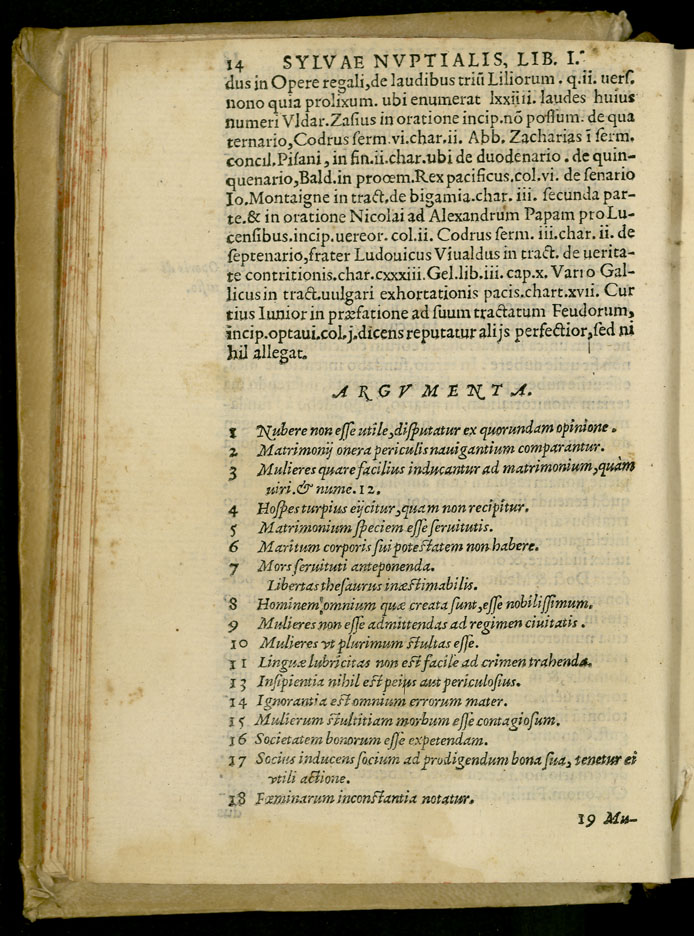 14 SYLVAE NVPTIALIS, LIB. I.
dus in Opere regali, de laudibus triũ Liliorum . q.ii. uers.
nono quia prolixum. ubi enumerat lxxiiii. laudes huius
numeri Vldar.Zasius in oratione incip.nõ possum. de qua
ternario, Codrus serm.vi.char.ii. Abb. Zacharias ĩ serm.
concil.Pisani, in fin.ii.char.ubi de duodenario . de quin-
quenario, Bald.in prooem.Rex pacificus.col.vi. de senario
Io.Montaigne in tract.de bigamia.char. iii. secunda par-
te.& in oratione Nicolai ad Alexandrum Papam pro Lu-
censibus.incip.uereor. col.ii. Codrus serm. iii.char.ii. de
septenario, frater Ludouicus Viualdus in tract. de uerita-
te contritionis.char.cxxxiii.Gel.lib.iii. cap.x. Varro Gal-
licus in tract.uulgari exhortationis pacis.chart.xvii. Cur
tius Iunior in præfatione ad suum tractatum Feudorum,
incip.optaui.col.j.dicens reputatur alijs perfectior, sed ni
hil allegat.
ARGVMENTA.
1 Nubere non esse utile, disputatur ex quorundam opinione .
2 Matrimonij onera periculis nauigantium comparantur.
3 Mulieres quare facilius inducantur ad matrimonium, quàm
uiri.& nume.12.
4 Hospes turpius eijcitur, quam non recipitur.
5 Matrimonium speciem esse seruitutis.
6 Maritum corporis sui potestatem non habere.
7 Mors seruituti anteponenda.
Libertas thesaurus inæstimabilis.
8 Hominem omnium quæ creata sunt, esse nobilissimum.
9 Mulieres non esse admittendas ad regimen ciuitatis .
10 Mulieres vt plurimum stultas esse.
11 Linguæ lubricitas non est facile ad crimen trahenda.
13 Insipientia nihil est peius aut periculosius.
14 Ignorantia est omnium errorum mater.
15 Mulierum stultitiam morbum esse contagiosum.
16 Societatem bonorum esse expetendam.
17 Socius inducens socium ad prodigendum bona sua, tenetur ei
vtili actione.
18 Fœminarum inconstantia notatur.
19 Mu-